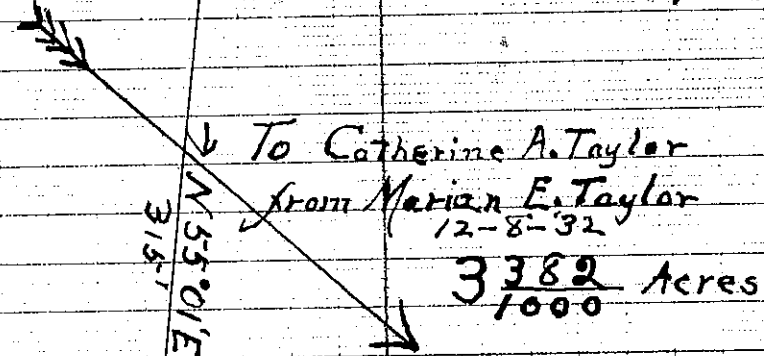 To Catherine A. Taylor
from Marian E. Taylor
12-8-'32
3 382/1000 Acres
N 55°01'E
315'